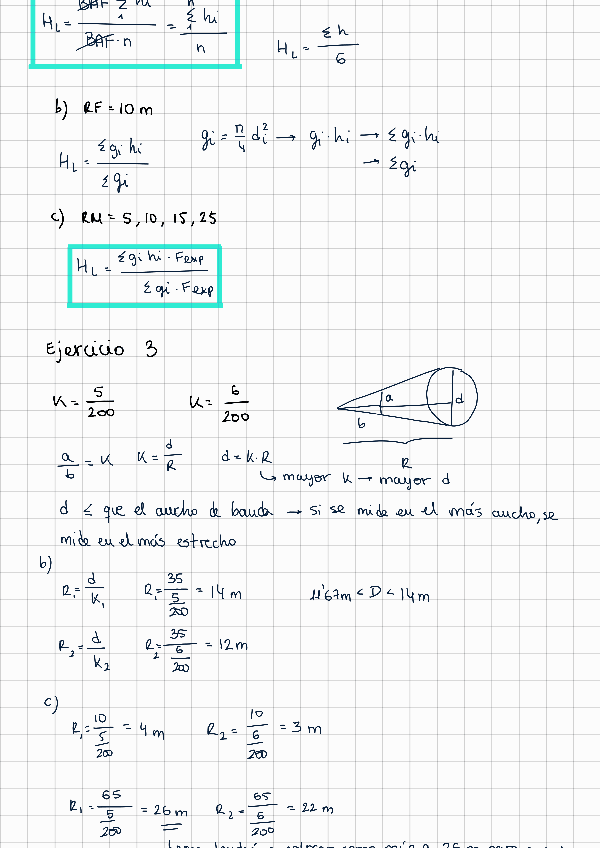 H_L = (BAF Σ hi) / (BAF · n) = (Σ hi) / n
H_L = Σh / 6
b) RF = 10 m
H_L = Σ gi hi / Σ gi
gi = π/4 di² → gi · hi → Σ gi · hi
→ Σ gi
c) RM = 5, 10, 15, 25
H_L = Σ gi hi · Fexp / Σ gi · Fexp
Ejercicio 3
K = 5/200
K = 6/200
a
d
b
R
a/b = K
K = d/R
d = K · R
↳ mayor K → mayor d
d ≤ que el ancho de banda → si se mide en el más ancho, se
mide en el más estrecho
b)
R₁ = d/K₁
R₁ = 35/(5/200) = 14 m
11'67m < D < 14m
R₂ = d/K₂
R₂ = 35/(6/200) = 12 m
c)
R₁ = 10/(5/200) = 4 m
R₂ = 10/(6/200) = 3 m
R₁ = 65/(5/200) = 26 m
R₂ = 65/(6/200) = 22 m